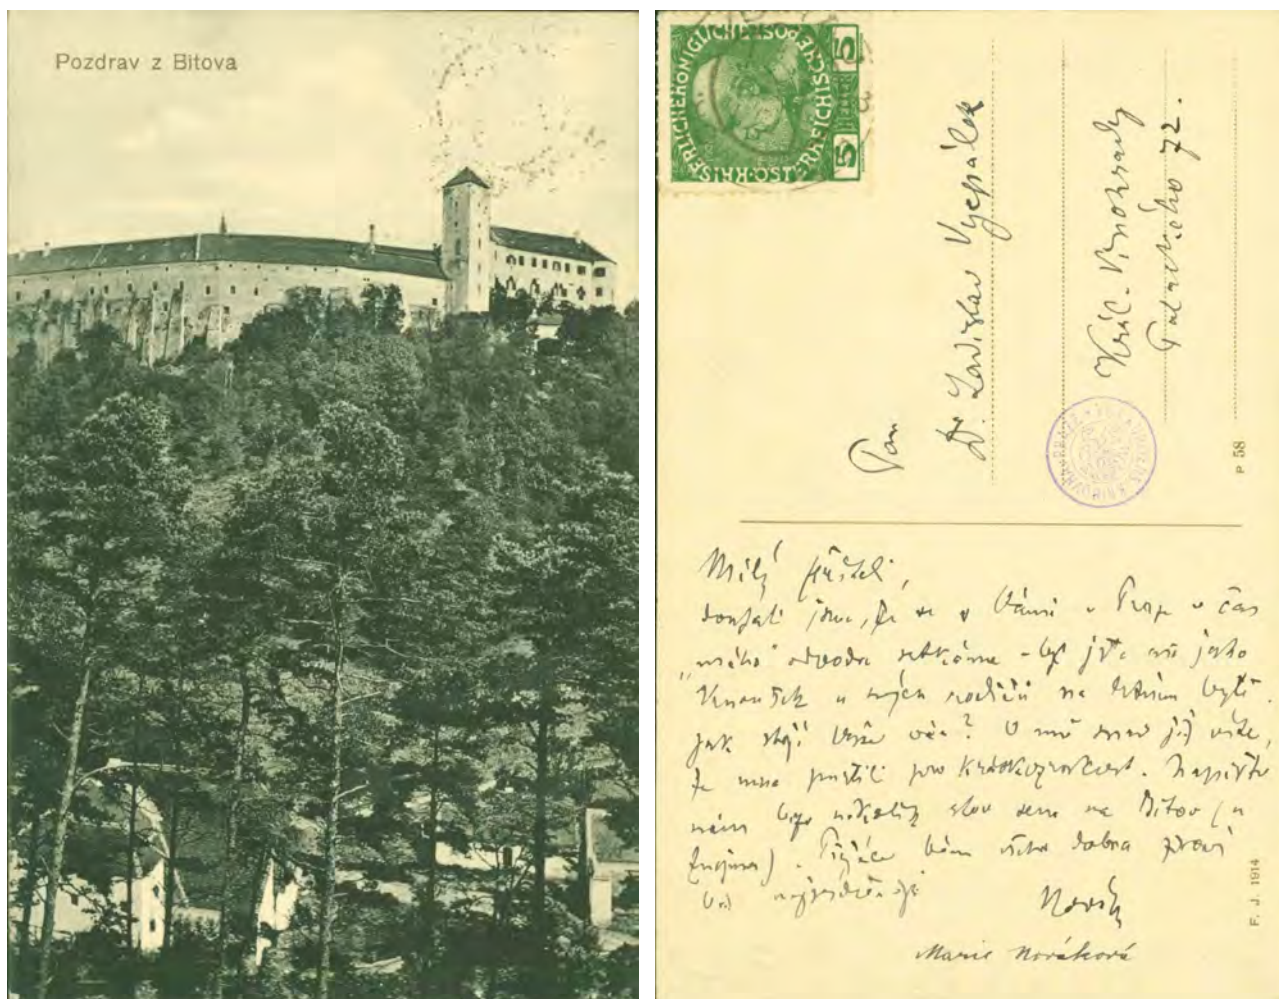 Pozdrav z Bitova
KAISERLICHE KÖNIGLICHE ÖSTERREICHISCHE POST
5 HELLER 5
Pan
Dr Ladislav Vycpálek
Král. Vinohrady
Palackého 72.
P 58
F. J. 1914
Milý příteli,
doufali jsme, že se s Vámi v Praze v čas
"mého" odvodu setkáme -
u svých rodičů na byli.
Jak stojí Vaše věc? O mně snad již víte,
že mne pustili pro krátkozrakost. Napište
nám několik slov sem na Bítov (u
Znojma). Vám všeho dobra zdraví
Vás nejsrdečněji
Novák
Marie Nováková